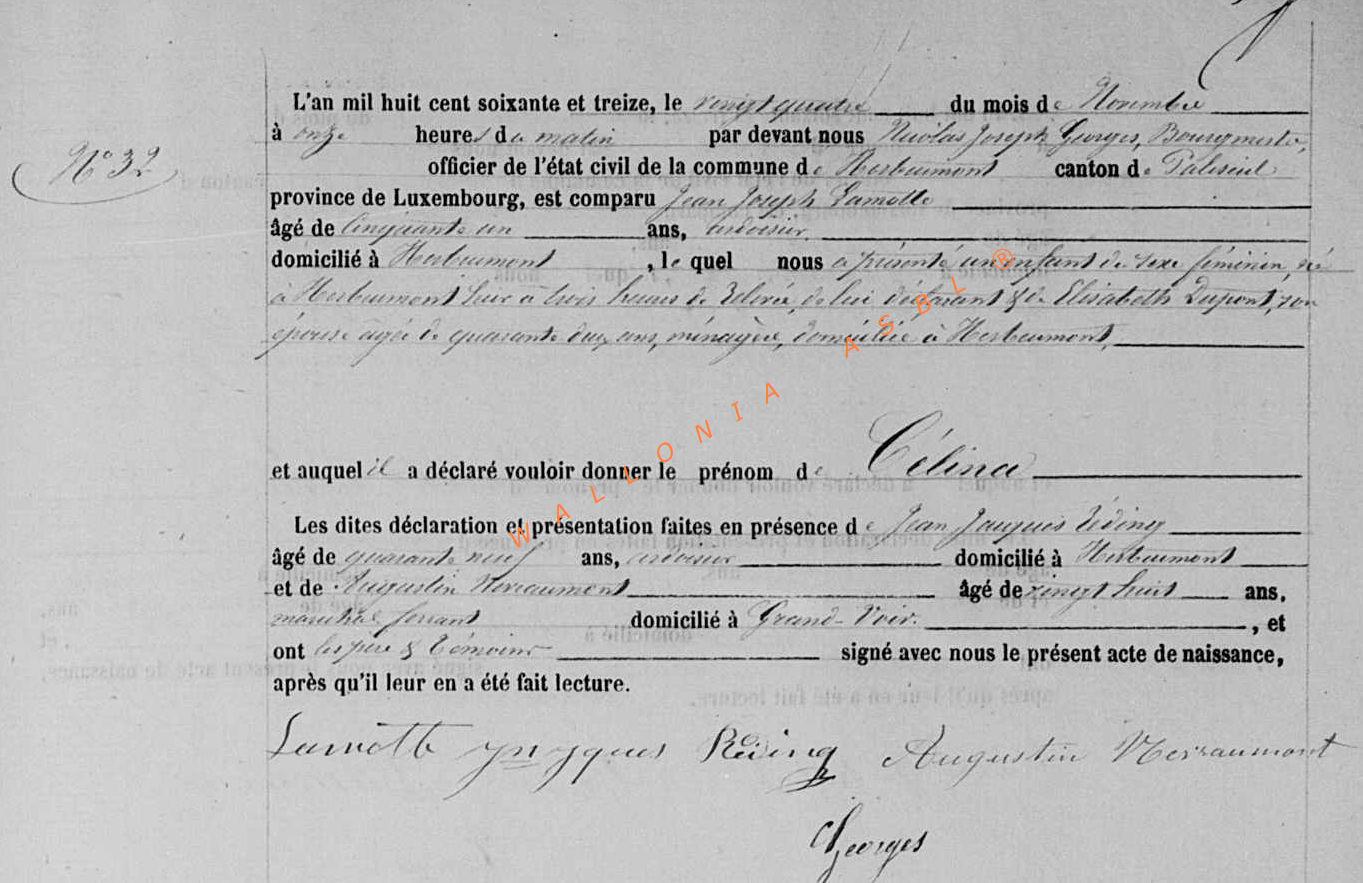 N° 32
L'an mil huit cent soixante et treize, le vingt quatre du mois de Novembre
à onze heures du matin par devant nous Nicolas Joseph Georges, Bourgmestre,
officier de l'état civil de la commune de Herbeumont canton de Paliseul
province de Luxembourg, est comparu Jean Joseph Lamotte
âgé de cinquante un ans, ardoisier
domicilié à Herbeumont, le quel nous a présenté un enfant du sexe féminin, né
à Herbeumont hier à trois heures de relevée, de lui déclarant & de Elisabeth Dupont, son
épouse agée de quarante deux ans, ménagère, domiciliée à Herbeumont,
et auquel il a déclaré vouloir donner le prénom de Célina
Les dites déclaration et présentation faites en présence de Jean Jacques Réding
âgé de quarante neuf ans, ardoisier domicilié à Herbeumont
et de Augustin Noiraumont âgé de vingt huit ans,
maréchal ferrant domicilié à Grand-Voir, et
ont les père & témoins signé avec nous le présent acte de naissance,
après qu'il leur en a été fait lecture.
Lamotte Réding Augustin Noiraumont
Georges
WALLONIA ASBL ®